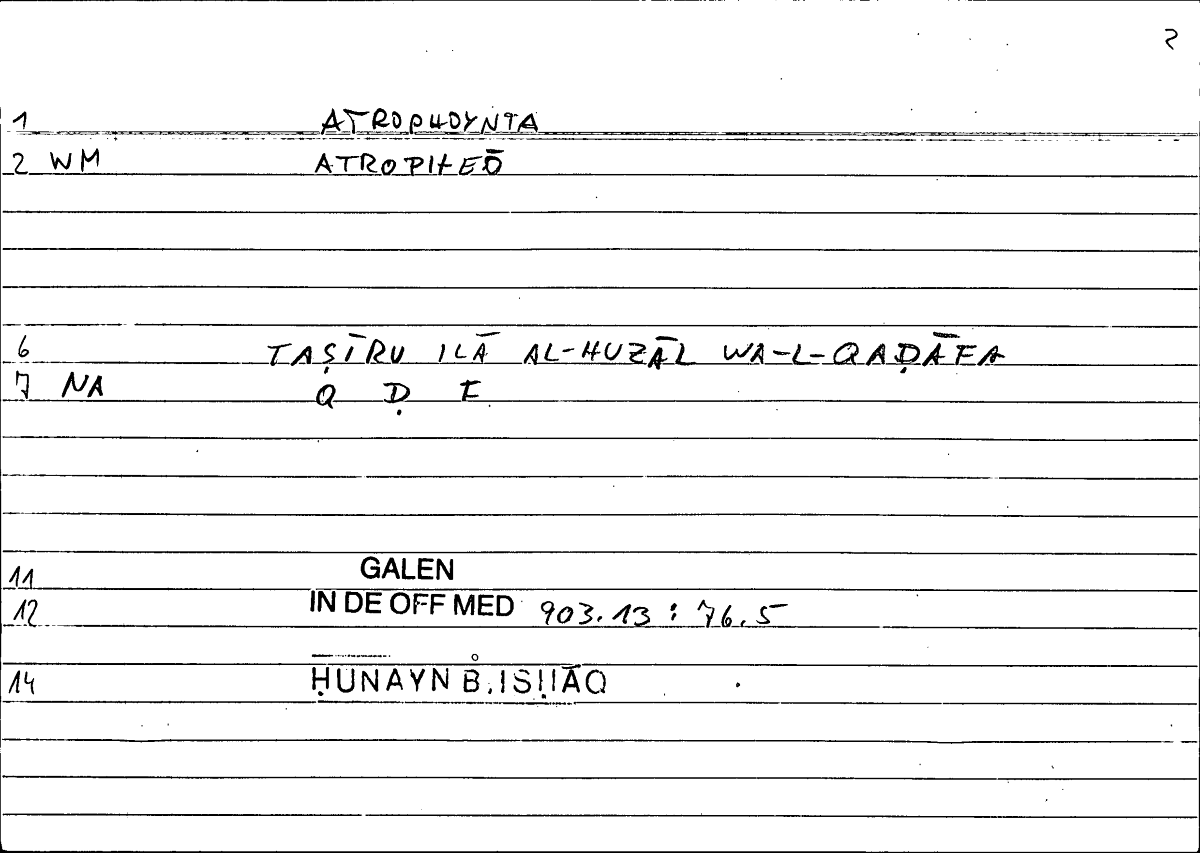 2
1 ATROPHOYNTA
2 WM ATROPHEŌ
6 TAṢĪRU ILĀ AL-HUZĀL WA-L-QAḌĀFA
7 NA Q Ḍ F
11 GALEN
12 IN DE OFF MED 903.13 : 76.5
14 ḤUNAYN B. ISḤĀQ